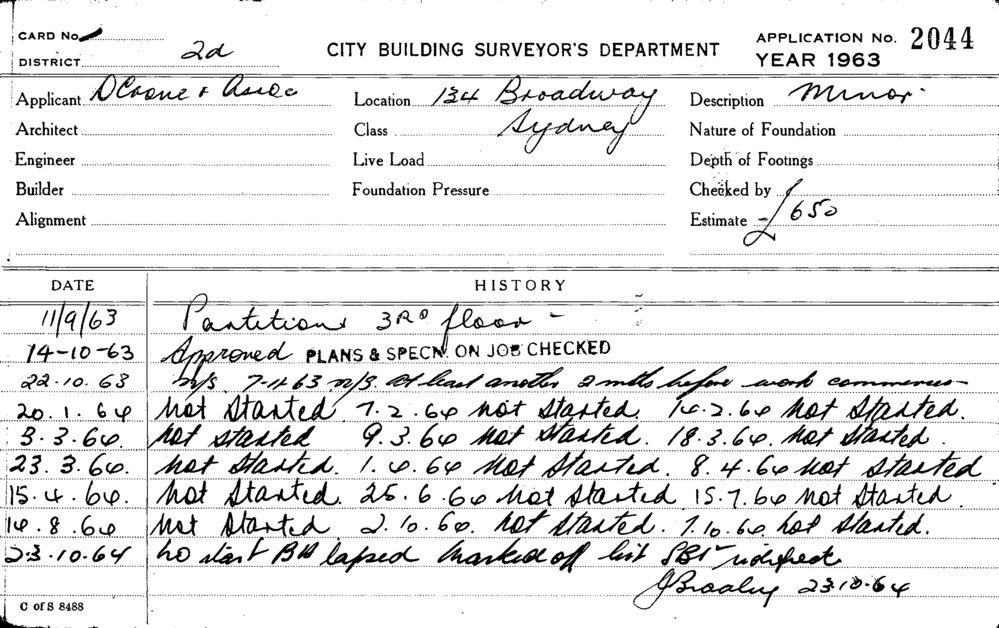 CARD No.
DISTRICT 2d
CITY BUILDING SURVEYOR'S DEPARTMENT
APPLICATION No. 2044
YEAR 1963
Applicant D Crone & Assoc Location 134 Broadway Description Minor.
Architect Class Sydney Nature of Foundation
Engineer Live Load Depth of Footings
Builder Foundation Pressure Checked by
Alignment Estimate £650
DATE HISTORY
11/9/63 Partitions 3RD floor -
14-10-63 Approved PLANS & SPECN. ON JOB CHECKED
22.10.63 n/s. 7-11-63 n/s. At least another 2 mths before work commences
20.1.64 Not Started 7.2.64 not Started. 14.2.64 Not Started.
3.3.64. Not started 9.3.64 Not Started. 18.3.64. Not Started.
23.3.64. Not Started. 1.4.64 Not Started. 8.4.64 not Started
15.4.64. Not Started. 25.6.64 Not Started 15.7.64 Not Started.
14.8.64 Not Started 2.10.64. Not Started. 7.10.64 Not Started.
23.10.64 no start BA lapsed marked off list
23.10.64
C of S 8488